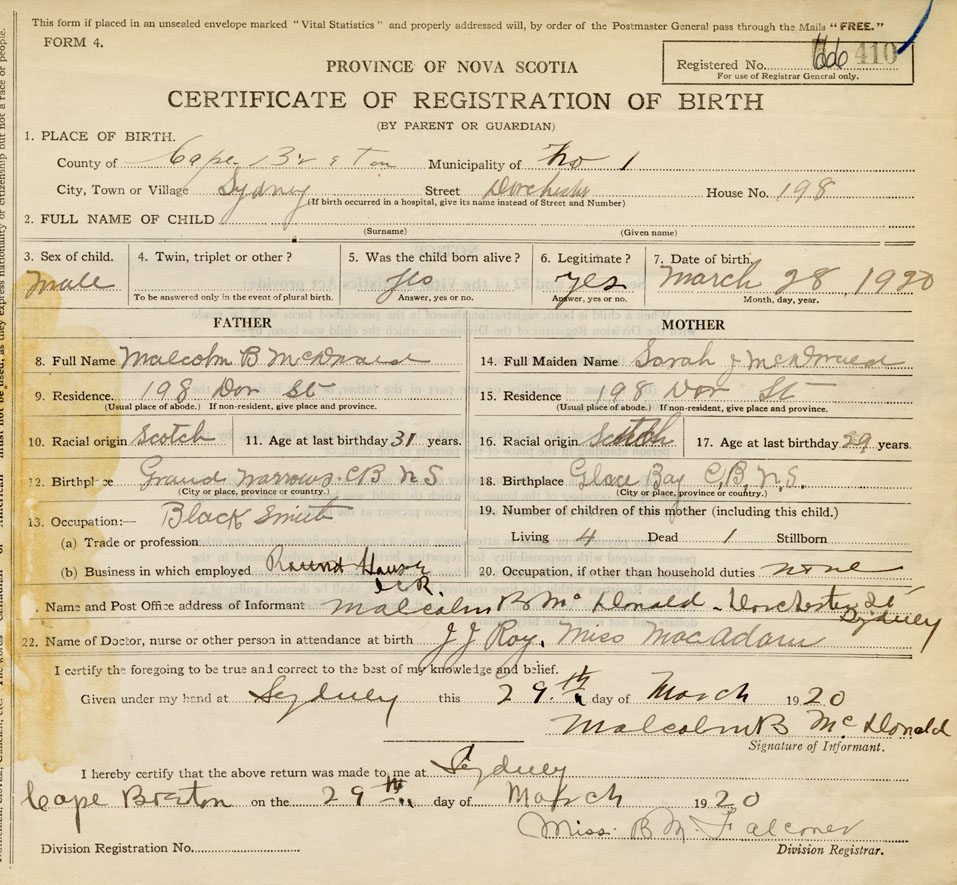 This form if placed in an unsealed envelope marked "Vital Statistics" and properly addressed will, by order of the Postmaster General pass through the Mails "FREE."
FORM 4.
Registered No. 410
For use of Registrar General only.
PROVINCE OF NOVA SCOTIA
CERTIFICATE OF REGISTRATION OF BIRTH
(BY PARENT OR GUARDIAN)
1. PLACE OF BIRTH.
County of Cape Breton Municipality of No 1
City, Town or Village Sydney Street Dorchester House No. 198
(If birth occurred in a hospital, give its name instead of Street and Number)
2. FULL NAME OF CHILD
(Surname) (Given name)
3. Sex of child. 4. Twin, triplet or other? 5. Was the child born alive? 6. Legitimate? 7. Date of birth.
Male yes yes March 28 1920
To be answered only in the event of plural birth. Answer, yes or no. Answer, yes or no. Month, day, year.
FATHER MOTHER
8. Full Name Malcolm B McDonald 14. Full Maiden Name Sarah J McDonald
9. Residence. 198 Dor St 15. Residence 198 Dor St
(Usual place of abode.) If non-resident, give place and province. (Usual place of abode.) If non-resident, give place and province.
10. Racial origin Scotch 11. Age at last birthday 31 years. 16. Racial origin Scotch 17. Age at last birthday 29 years.
12. Birthplace Grand Narrows C B N S 18. Birthplace Glace Bay C,B, N.S.
(City or place, province or country.) (City or place, province or country.)
13. Occupation:— Black Smith 19. Number of children of this mother (including this child.)
(a) Trade or profession Living 4 Dead 1 Stillborn
(b) Business in which employed Round House 20. Occupation, if other than household duties none
Name and Post Office address of Informant Malcolm B Mc Donald - Dorchester St Sydney
22. Name of Doctor, nurse or other person in attendance at birth J J Roy. Miss MacAdam
I certify the foregoing to be true and correct to the best of my knowledge and belief.
Given under my hand at Sydney this 29th day of March 1920
Malcolm B Mc Donald
Signature of Informant.
I hereby certify that the above return was made to me at Sydney
Cape Breton on the 29th day of March 1920
Miss B M Falconer
Division Registration No. Division Registrar.